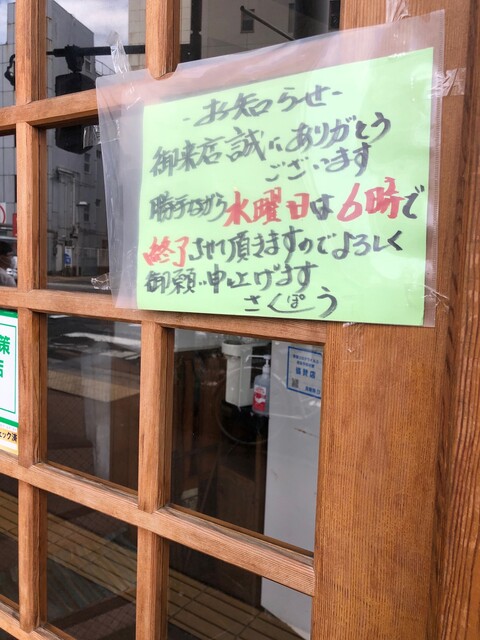 -お知らせ-
御来店誠にありがとう
ございます
勝手ながら水曜日は6時で
終了させて頂きますのでよろしく
御願い申し上げます
さくぽう
策
店
協賛店